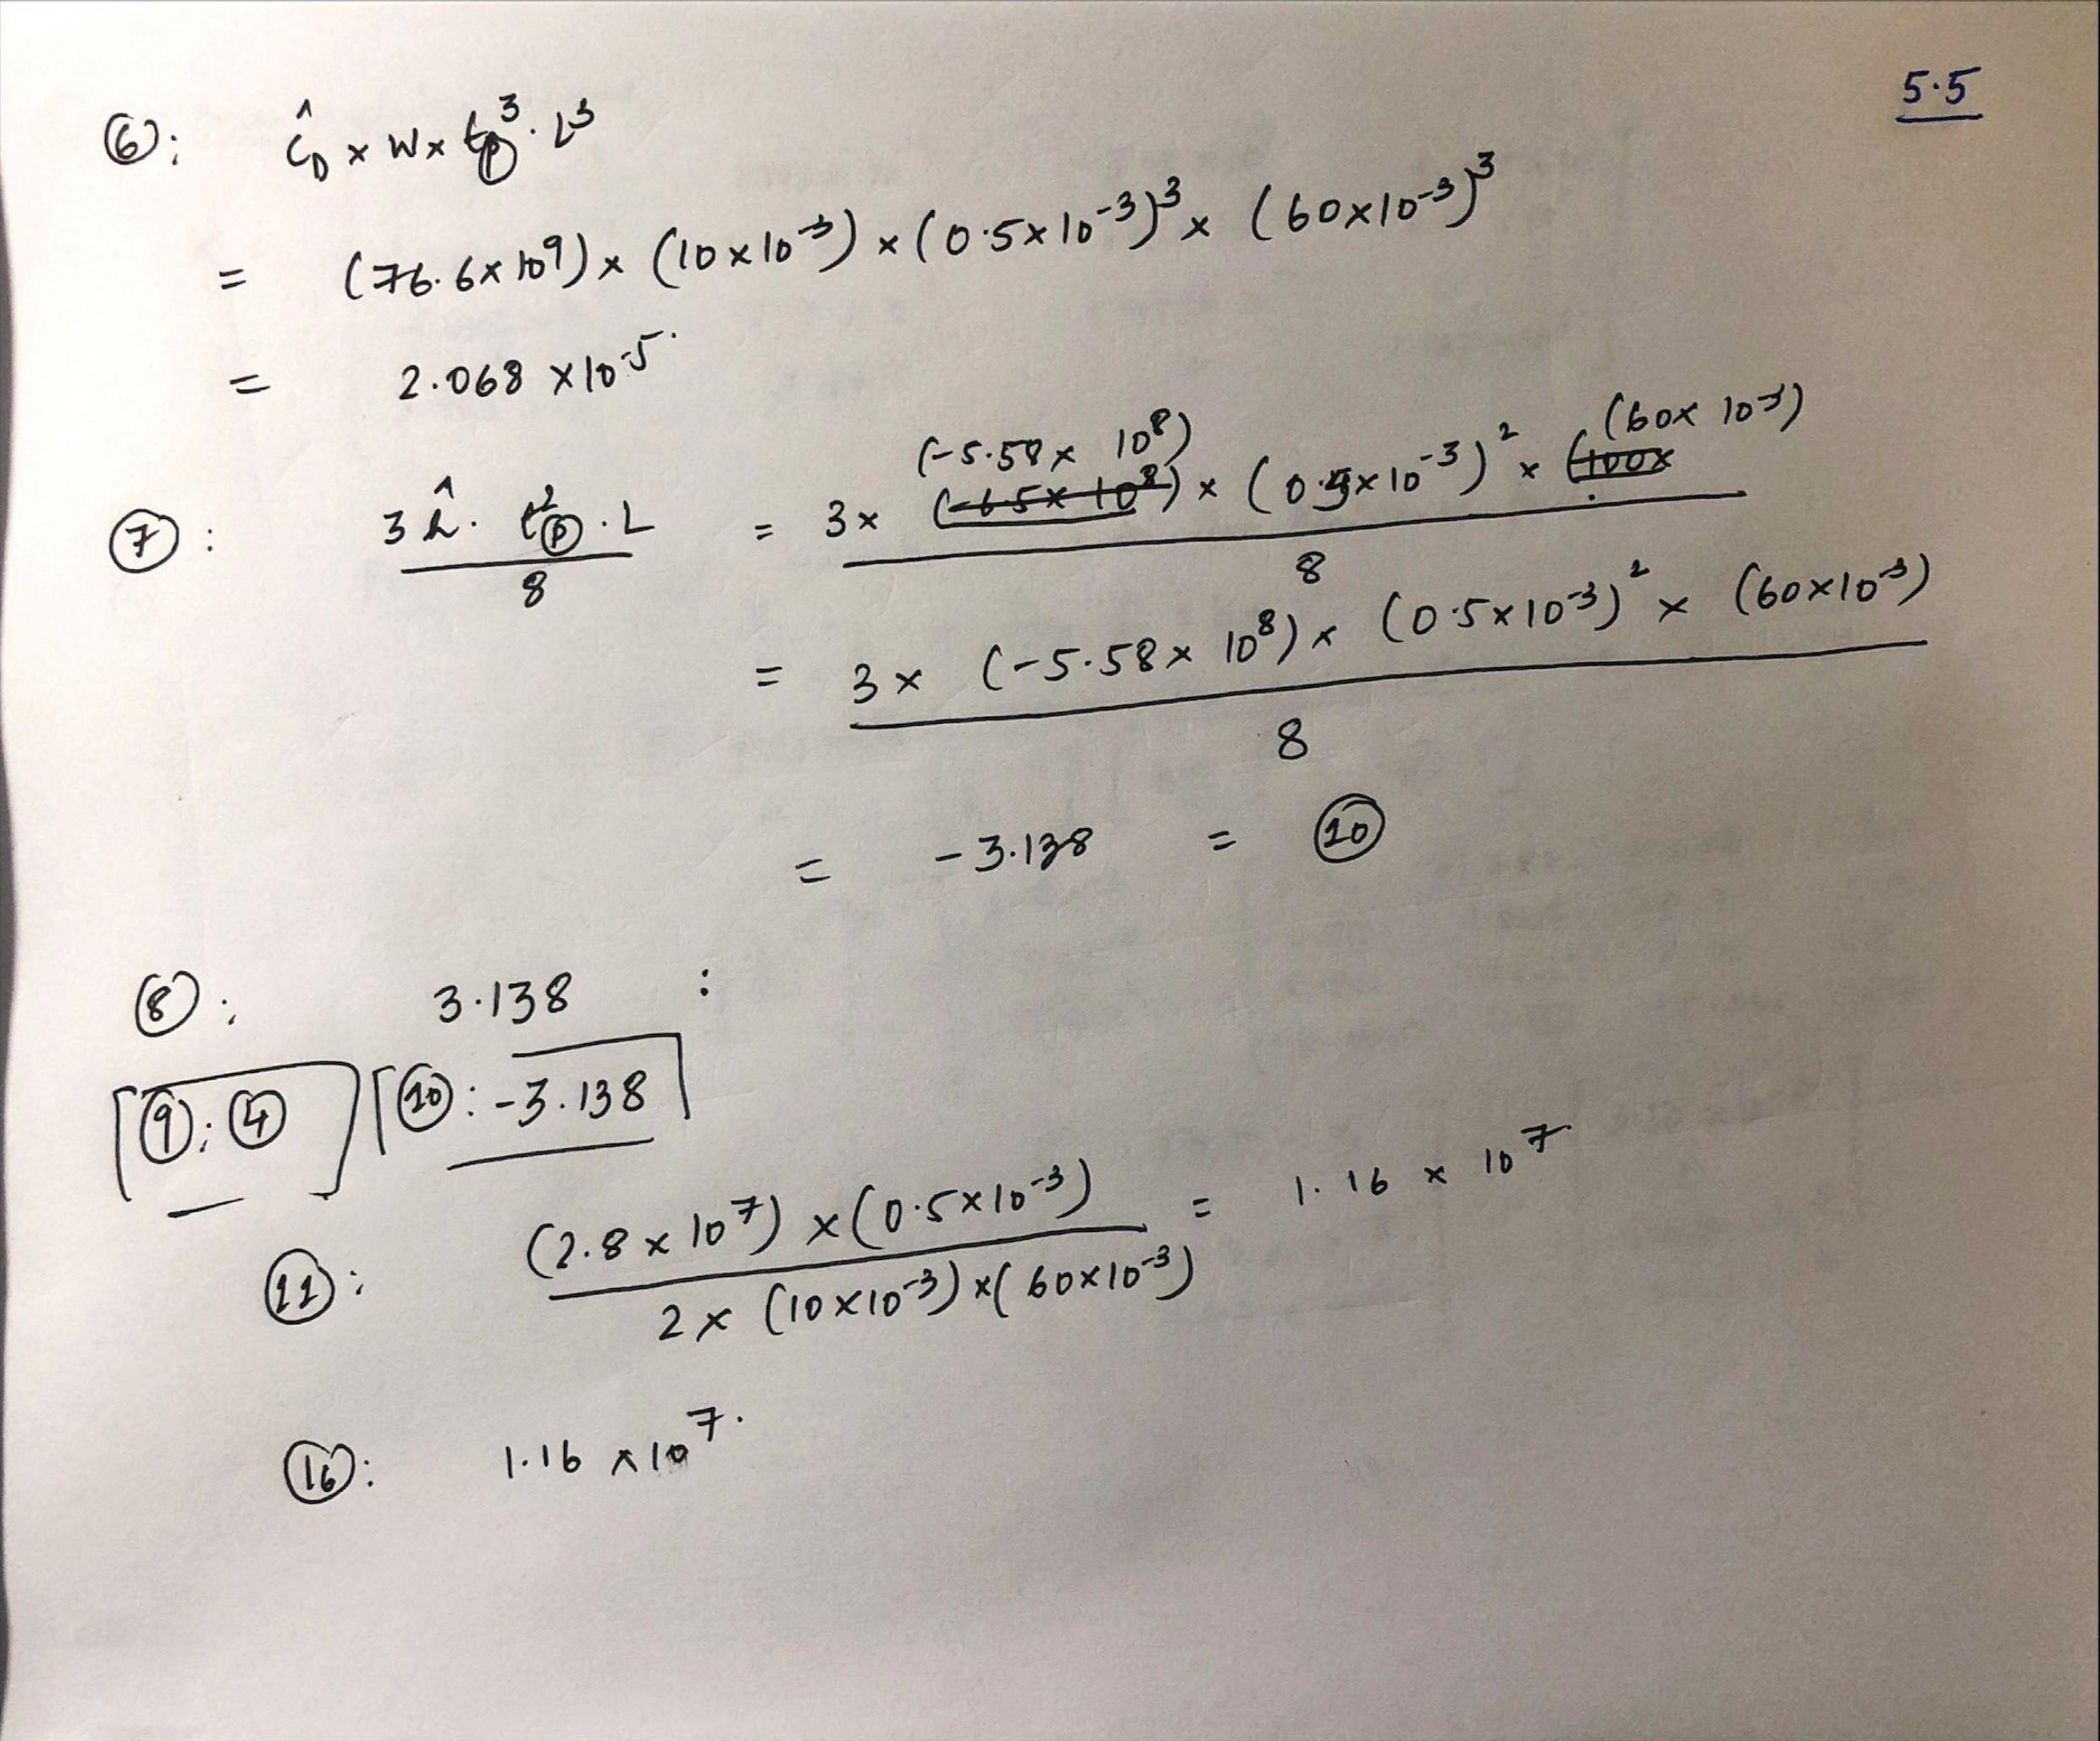 5.5
⑥: ĉ_D × W × t_ⓟ³ · L³
= (76.6×10⁹) × (10×10⁻³) × (0.5×10⁻³)³ × (60×10⁻³)³
= 2.068 ×10⁻⁵
(-5.58× 10⁸) (60× 10⁻³)
⑦: 3ĥ · t²_ⓟ · L / 8 = 3× × (0.5×10⁻³)² × / 8
= 3× (-5.58× 10⁸) × (0.5×10⁻³)² × (60×10⁻³) / 8
= -3.138 = ⑩
⑧: 3.138 :
[⑨: ④] [⑩: -3.138]
⑪: (2.8 × 10⁷) × (0.5×10⁻³) / 2× (10×10⁻³) × (60×10⁻³) = 1.16 × 10⁷
⑯: 1.16 ×10⁷.